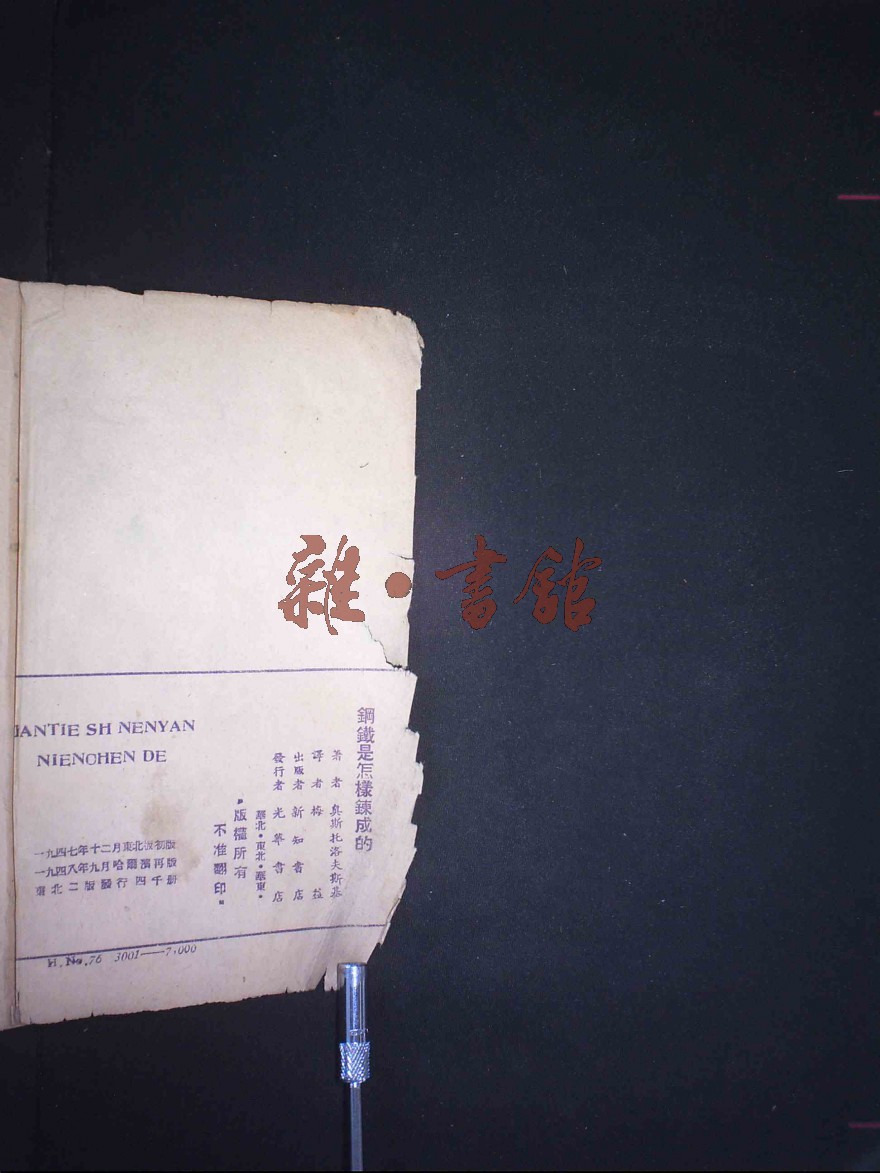 雜·書館
鋼鐵是怎樣鍊成的
著者 奧斯托洛夫斯基
譯者 梅益
出版者 新知書店
發行者 光華書店
華北·東北·華東·
版權所有
不准翻印
IANTIE SH NENYAN
NIENCHEN DE
一九四七年十二月東北版初版
一九四八年九月哈爾濱再版
東北二版發行四千册
H.No.76 3001——7,000